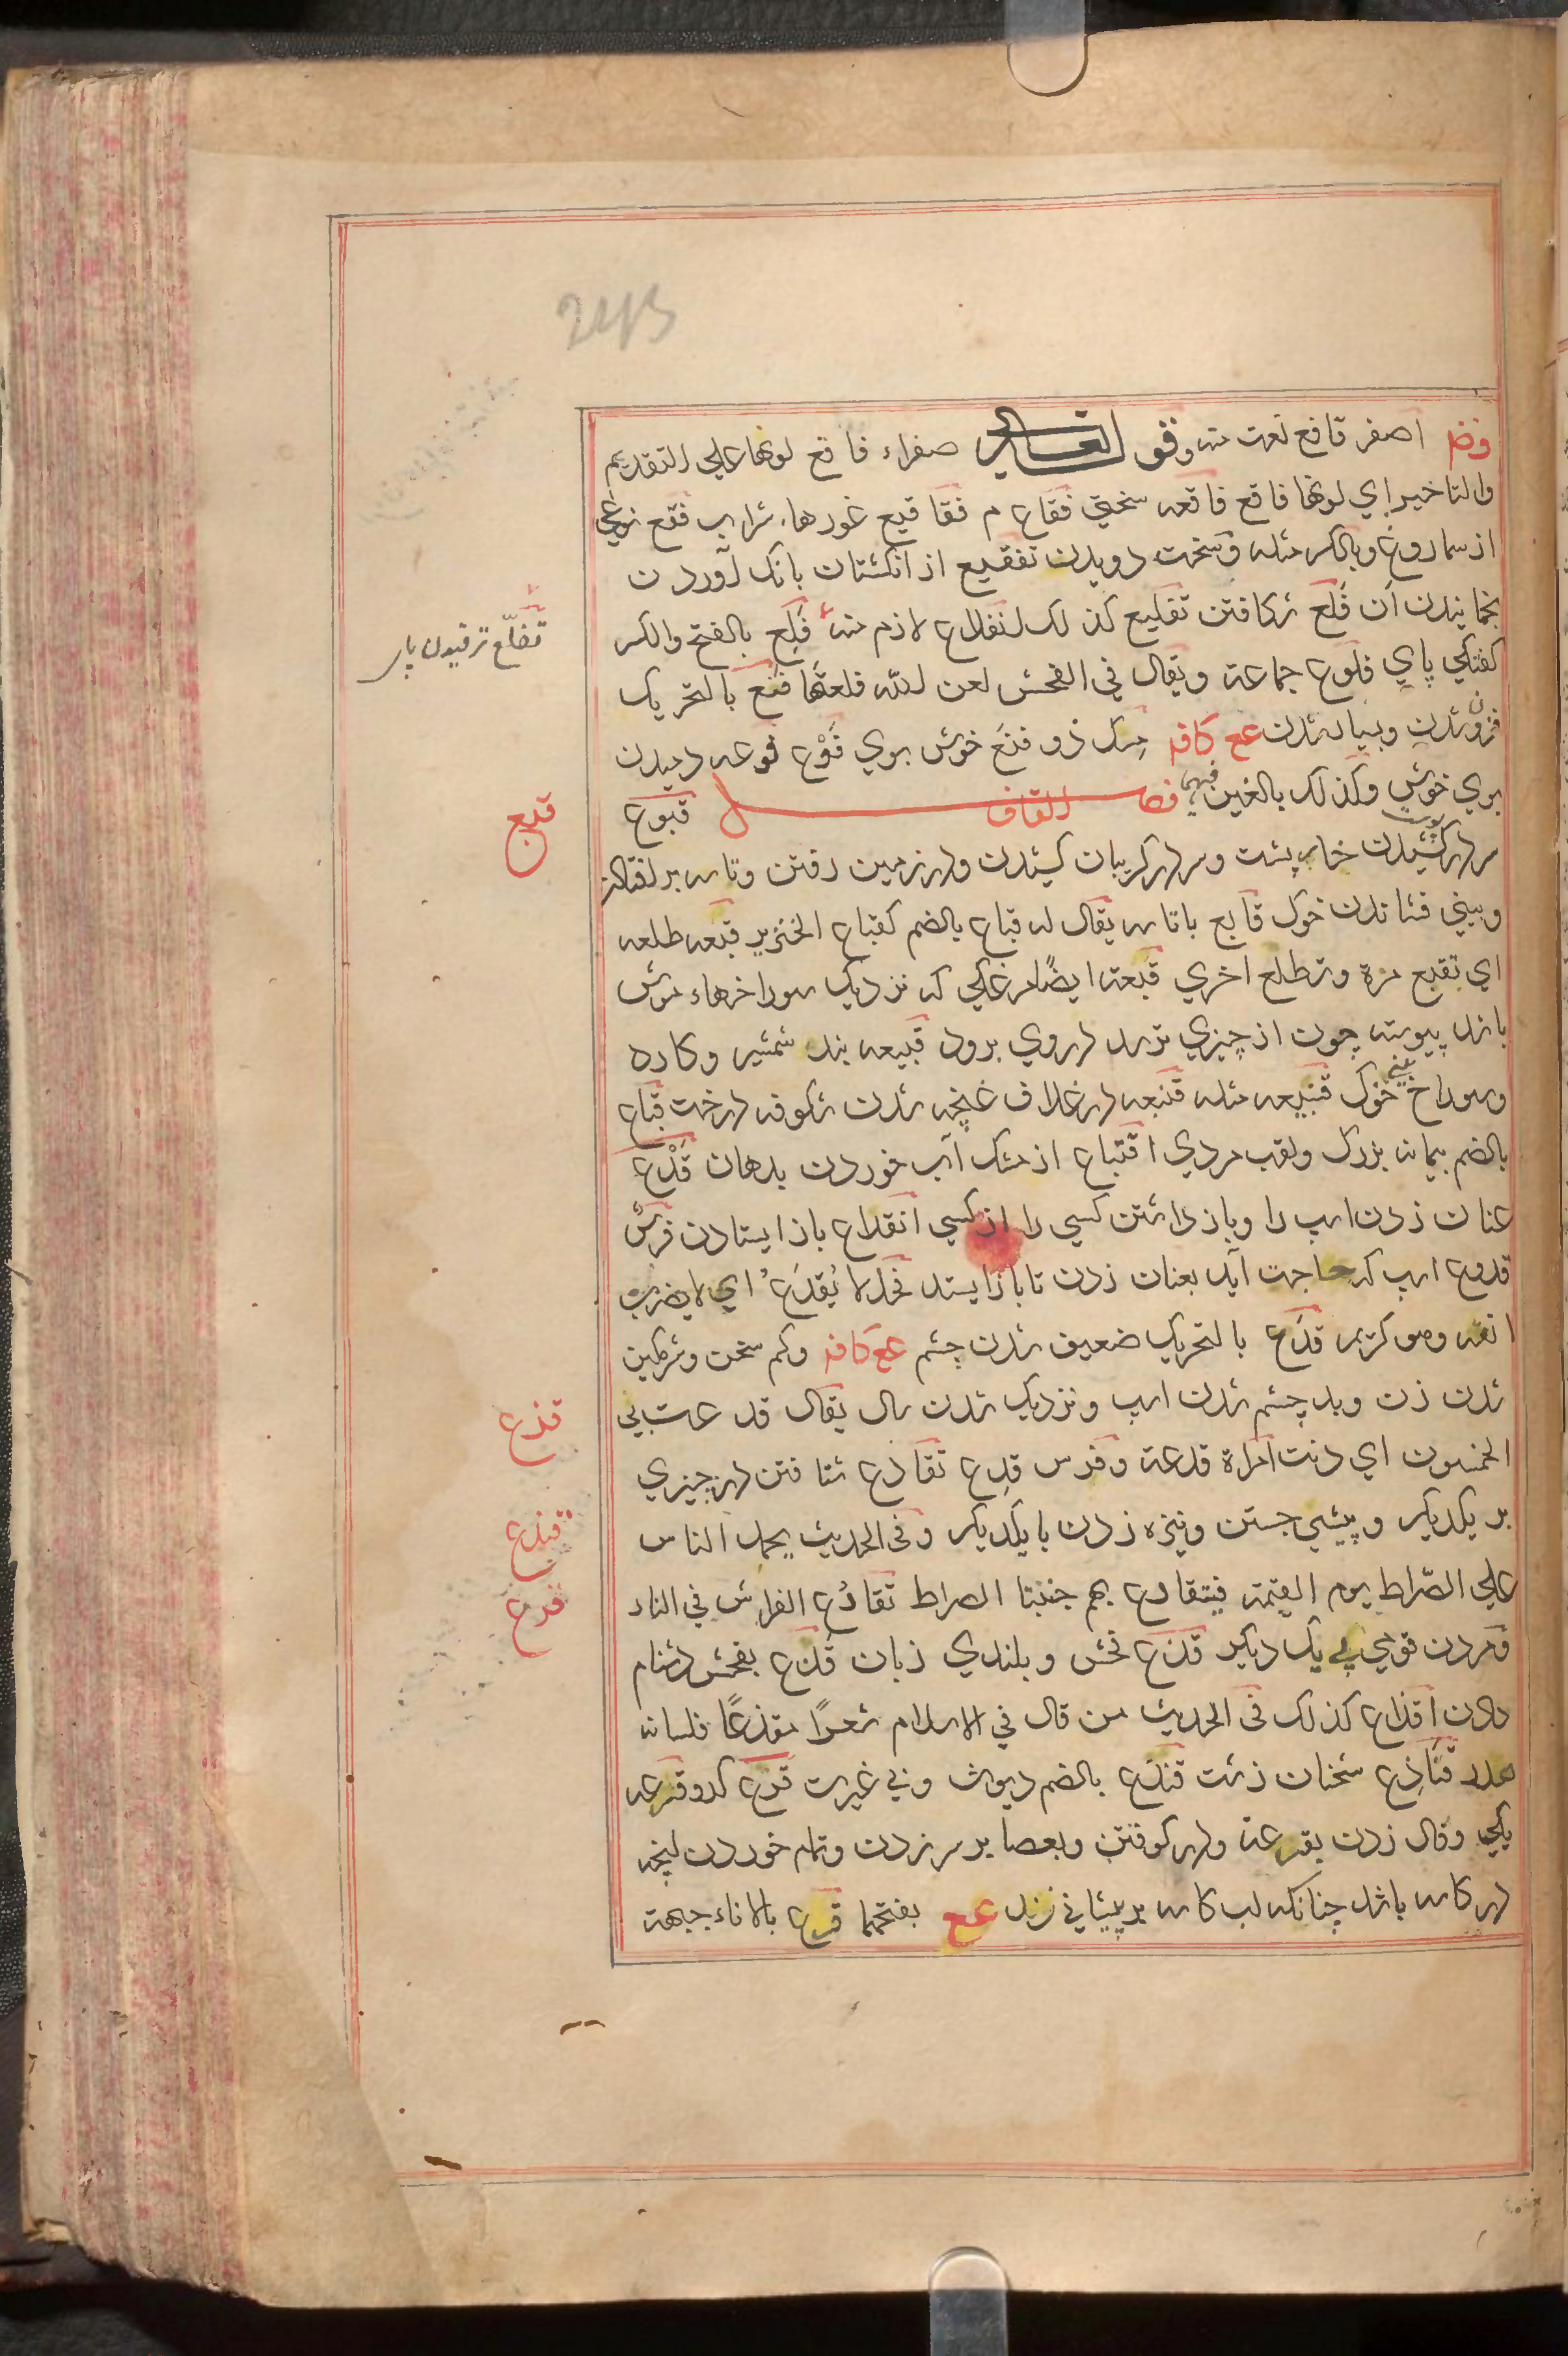 2413
فضم اصفر فاقع نعت منه وقو لتعالى صفراء فاقع لونها علي التقديم
والتاخير اي لونها فاقع فاقعه سختي فقاع م فقاقيع غورها شراب فقع نوعي
از سماروغ وبالكسر مثله وسخت دويدن تفقيع از انكشتان بانك آوردن
بخمانيدن آن فلع شكافتن تفليع كذلك انفلاع لازم منه فلع بالفتح والكسر
كفتكي پاي فلوع جماعة ويقال في الفحش لعن الله فلعتها فنع بالتحريك
فزون شدن وبسيار شدن عع كافه مسك ذو فنع خوش بوي فوع فوعه دميدن
بوي خوش وكذلك بالغين فيهما فصل القاف قبوع
سر در كشيدن خارپشت وسر در كريبان كشيدن ودر زمين رفتن وتاسه بر افتادن
وبيني فشاندن خوك قابع باتاسه يقال له قباع بالضم كقباع الخنزير قبعه طلعه
اي تقبع مرة وتطلع اخري قبعة ايضا مرغكي كه نزديك سوراخهاء موش
باشد پيوسته چون از چيزي ترسد در وي برود قبيعه بند شمشير وكارد
وسوراخ بيني خوك قنبيعه مثله قنبعه در غلاف غنچه شدن شكوفه درخت قباع
بالضم پيمانه بزرك ولقب مردي اقتباع از مشك آب خوردن بدهان قدع
عنان زدن اسب را وباز داشتن كسي را از كسي انقداع باز ايستادن فرس
قدوع اسب كه حاجت آيد بعنان زدن تا باز ايستد فحل لا يقدع اي لا يضرب
انفه وهو كريم قدع بالتحريك ضعيف شدن چشم عع كافه وكم سخن وشرمكين
شدن زن وبد چشم شدن اسب ونزديك شدن سال يقال قدعت لي
الخمسون اي دنت امراة قدعة وفرس قدع تقادع شتافتن در چيزي
بر يكديكر وپيشي جستن ونيزه زدن با يكديكر وفي الحديث يحمل الناس
علي الصراط يوم القيمة فيتقادع بهم جنبتا الصراط تقادع الفراش في النار
ومردن قومي پي يك ديكر قذع فحش وبلندي زبان قذع بفحش دشنام
دادن اقذاع كذلك في الحديث من قال في الاسلام شعرا مقذعا فلسانه
هدر قناذع سخنان زشت قنذع بالضم ديوث وبي غيرت قرع كدو قرعه
يكي وقال زدن بقرعة ودر كوفتن وبعصا بر سر زدن وتمام خوردن انچه
در كاسه باشد چنانكه لب كاسه بر پيشاني زند عع بفتحهما قرع بالاناء جبهته
تضلّع ترقيدن پاي
قبع
قذع
قنذع
قرع